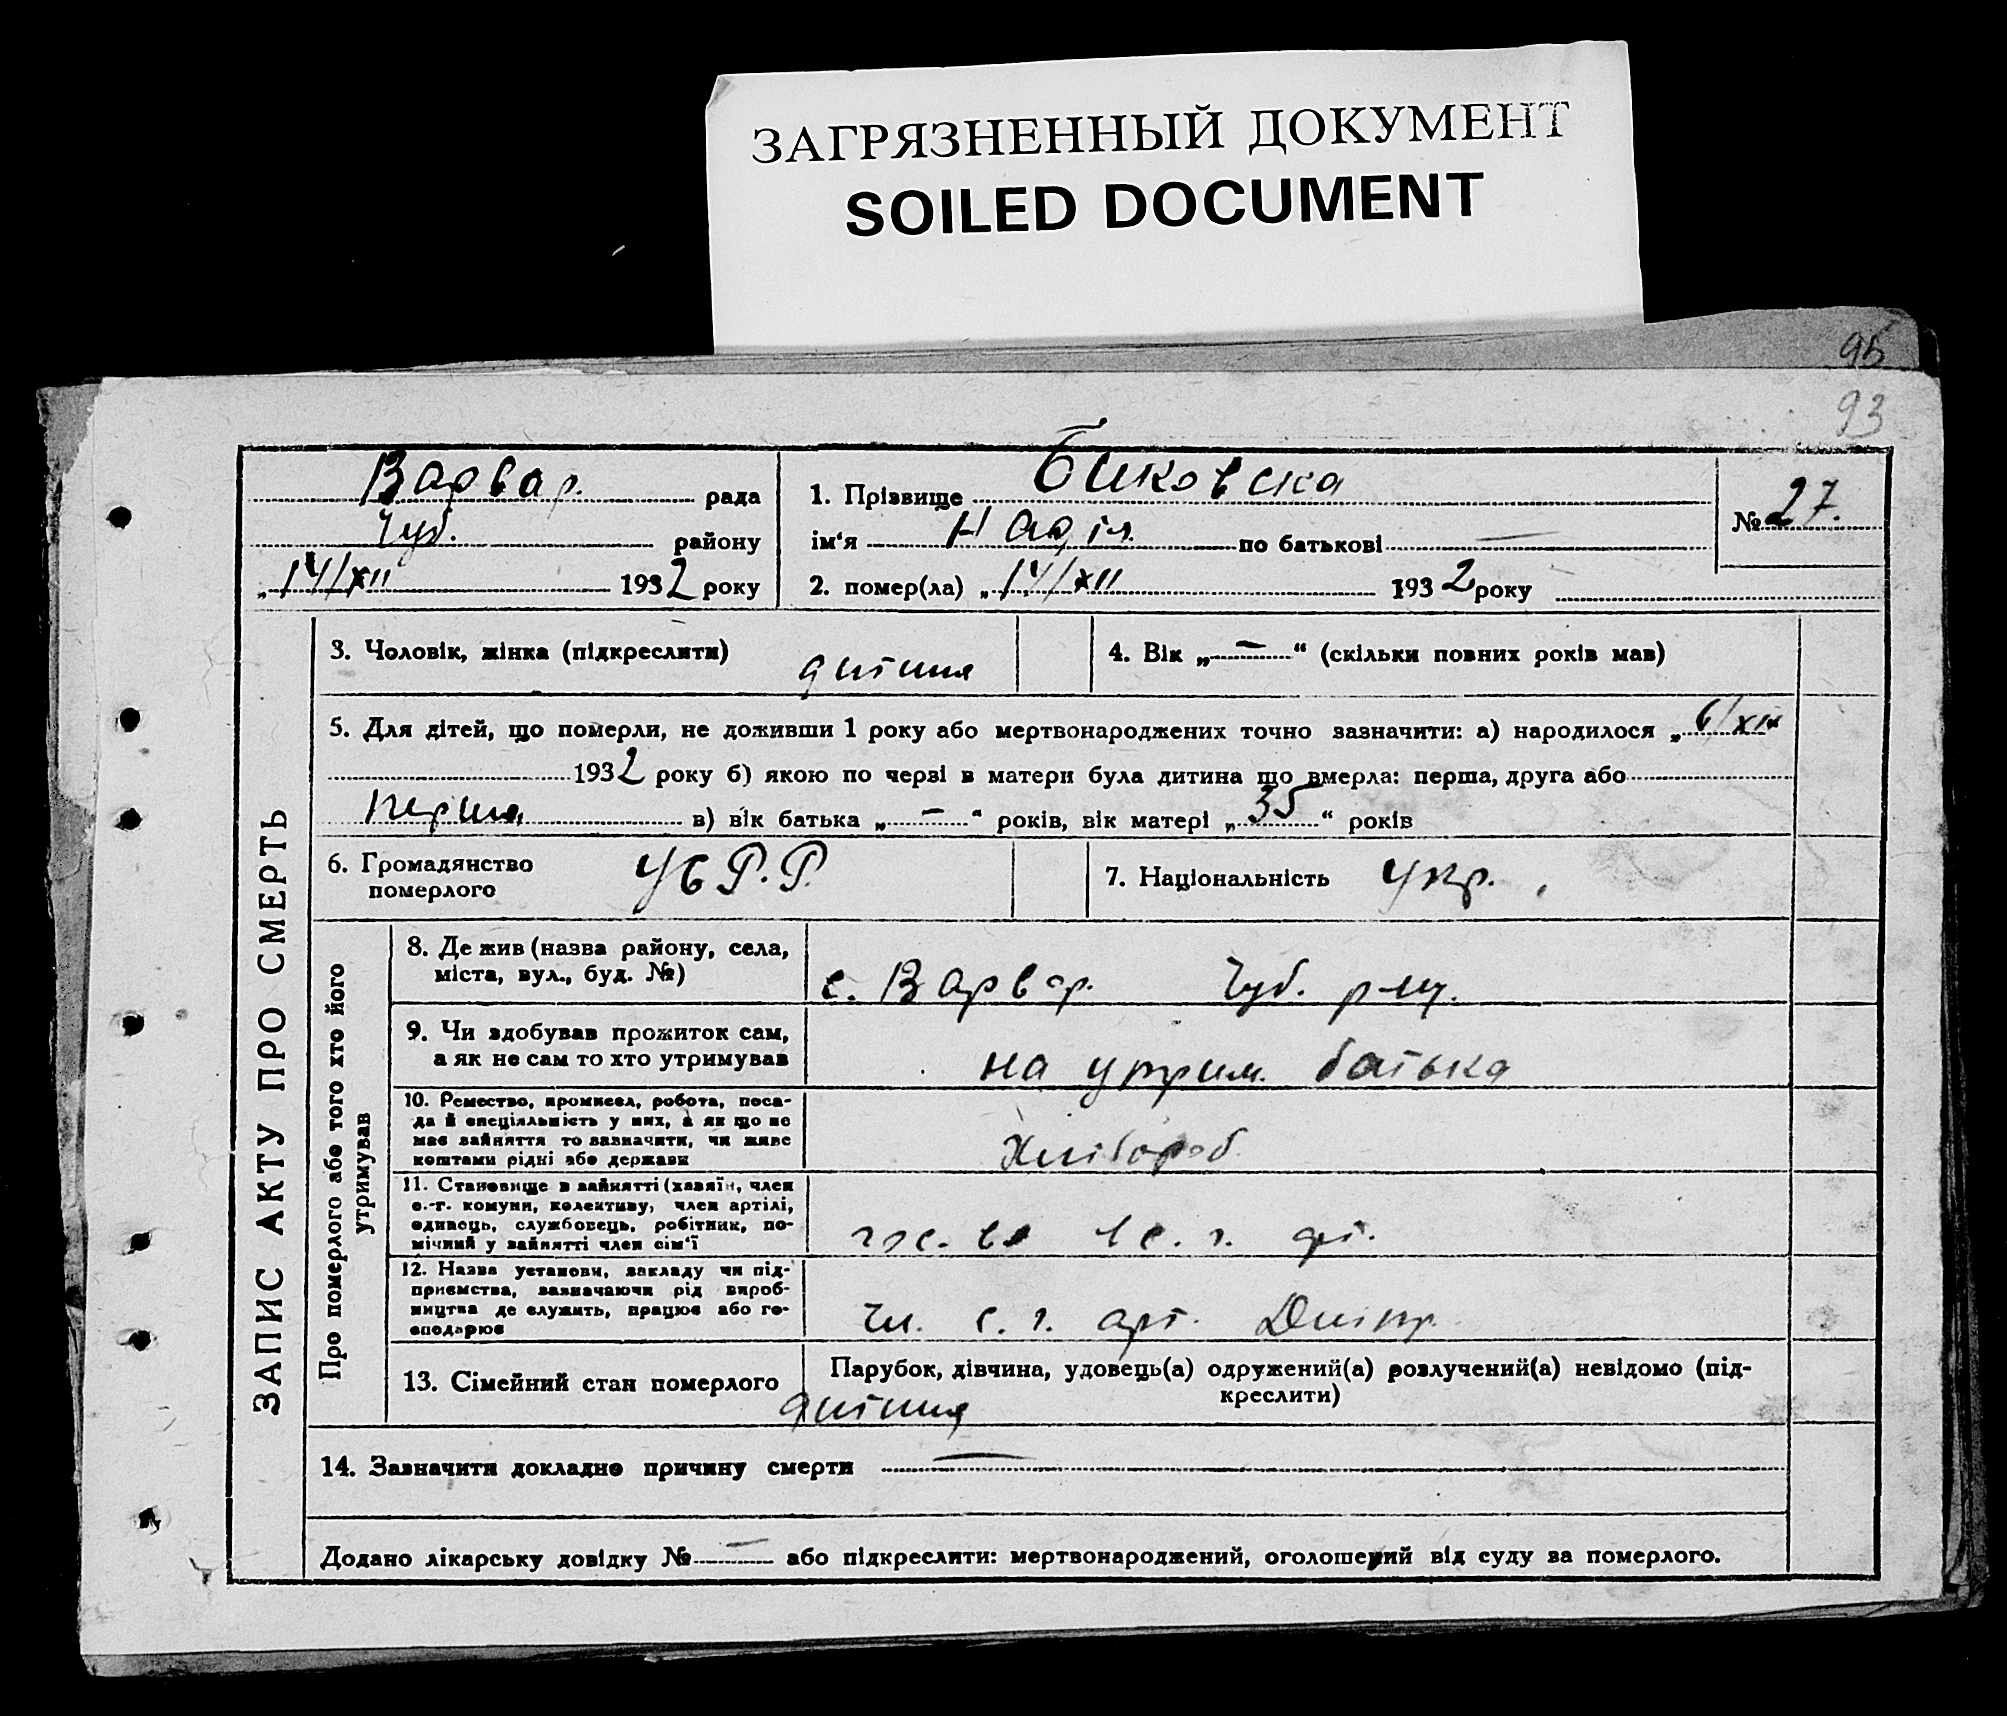 ЗАГРЯЗНЕННЫЙ ДОКУМЕНТ
SOILED DOCUMENT
95
93
Варвар. рада
Чуб. району
„14/XII 1932 року
1. Прізвище Биковська
ім'я Надія по батькові —
2. помер(ла) „14/XII 1932 року
№ 27.
ЗАПИС АКТУ ПРО СМЕРТЬ
3. Чоловік, жінка (підкреслити) дитина
4. Вік „—“ (скільки повних років мав)
5. Для дітей, що померли, не доживши 1 року або мертвонароджених точно зазначити: а) народилося „6/XII
1932 року б) якою по черзі в матери була дитина що вмерла: перша, друга або
перша в) вік батька „—“ років, вік матері „35“ років
6. Громадянство
померлого
УСРР.
7. Національність Укр.
Про померлого або того хто його
утримував
8. Де жив (назва району, села,
міста, вул., буд. №)
с. Варвар. Чуб. р-ну.
9. Чи здобував прожиток сам,
а як не сам то хто утримував
на утрим. батька
10. Ремество, промисел, робота, поса-
да й спеціяльність у них, а як що не
має зайняття то зазначити, чи живе
коштами рідні або держави
Хлібороб
11. Становище в зайнятті (хазяїн, член
с.-г. комуни, колективу, член артілі,
одинець, службовець, робітник, по-
мічний у зайнятті член сім'ї
с. г. арт.
12. Назва установи, закладу чи під-
приємства, зазначаючи рід вироб-
ництва де служить, працює або го-
сподарює
Чл. с. г. арт. Дніпр.
13. Сімейний стан померлого
Парубок, дівчина, удовець(а) одружений(а) розлучений(а) невідомо (під-
креслити)
дитина
14. Зазначити докладно причину смерти —
Додано лікарську довідку № — або підкреслити: мертвонароджений, оголошений від суду за померлого.